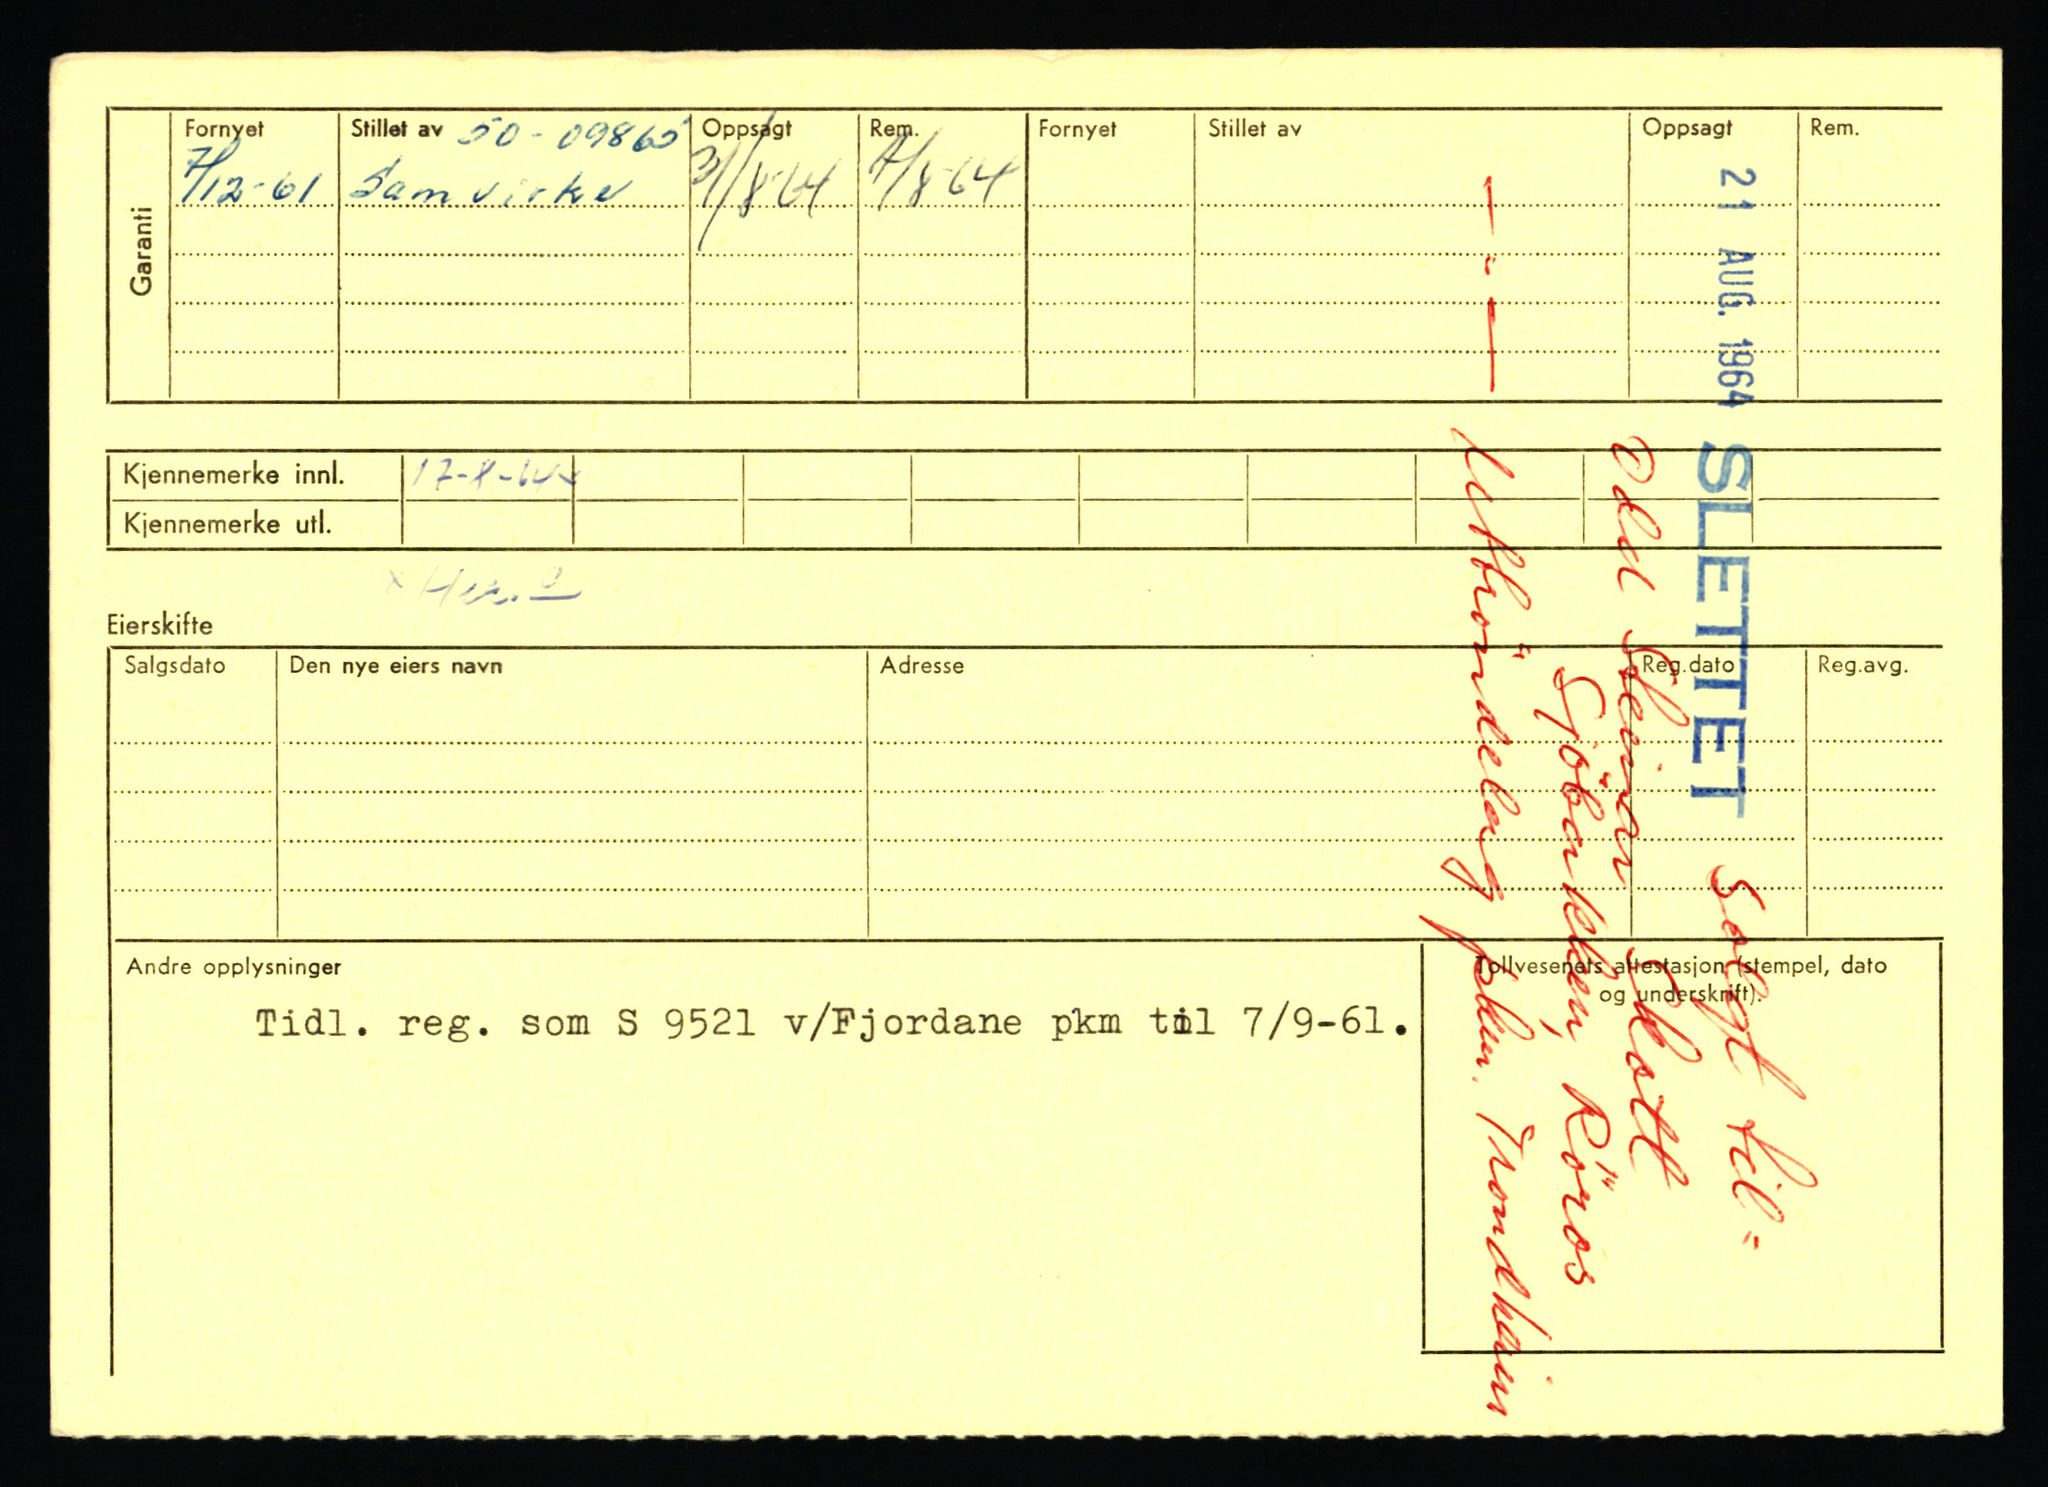 Garanti
Fornyet Stillet av 50-09865 Oppsagt Rem. Fornyet Stillet av Oppsagt Rem.
7/12-61 Samvirke 31/8-64 /8-64
Kjennemerke innl. 17-8-64 x
Kjennemerke utl.
x
Eierskifte
Salgsdato Den nye eiers navn Adresse Reg.dato Reg.avg.
Andre opplysninger
Tidl. reg. som S 9521 v/Fjordane pkm til 7/9-61.
Tollvesenets attestasjon (stempel, dato
og underskrift).
21 AUG. 1964 SLETTET Solgt til:
Odd Steinar Skott
Sjöbakken, Röros
— " — Uttröndelag pkm. Trondheim